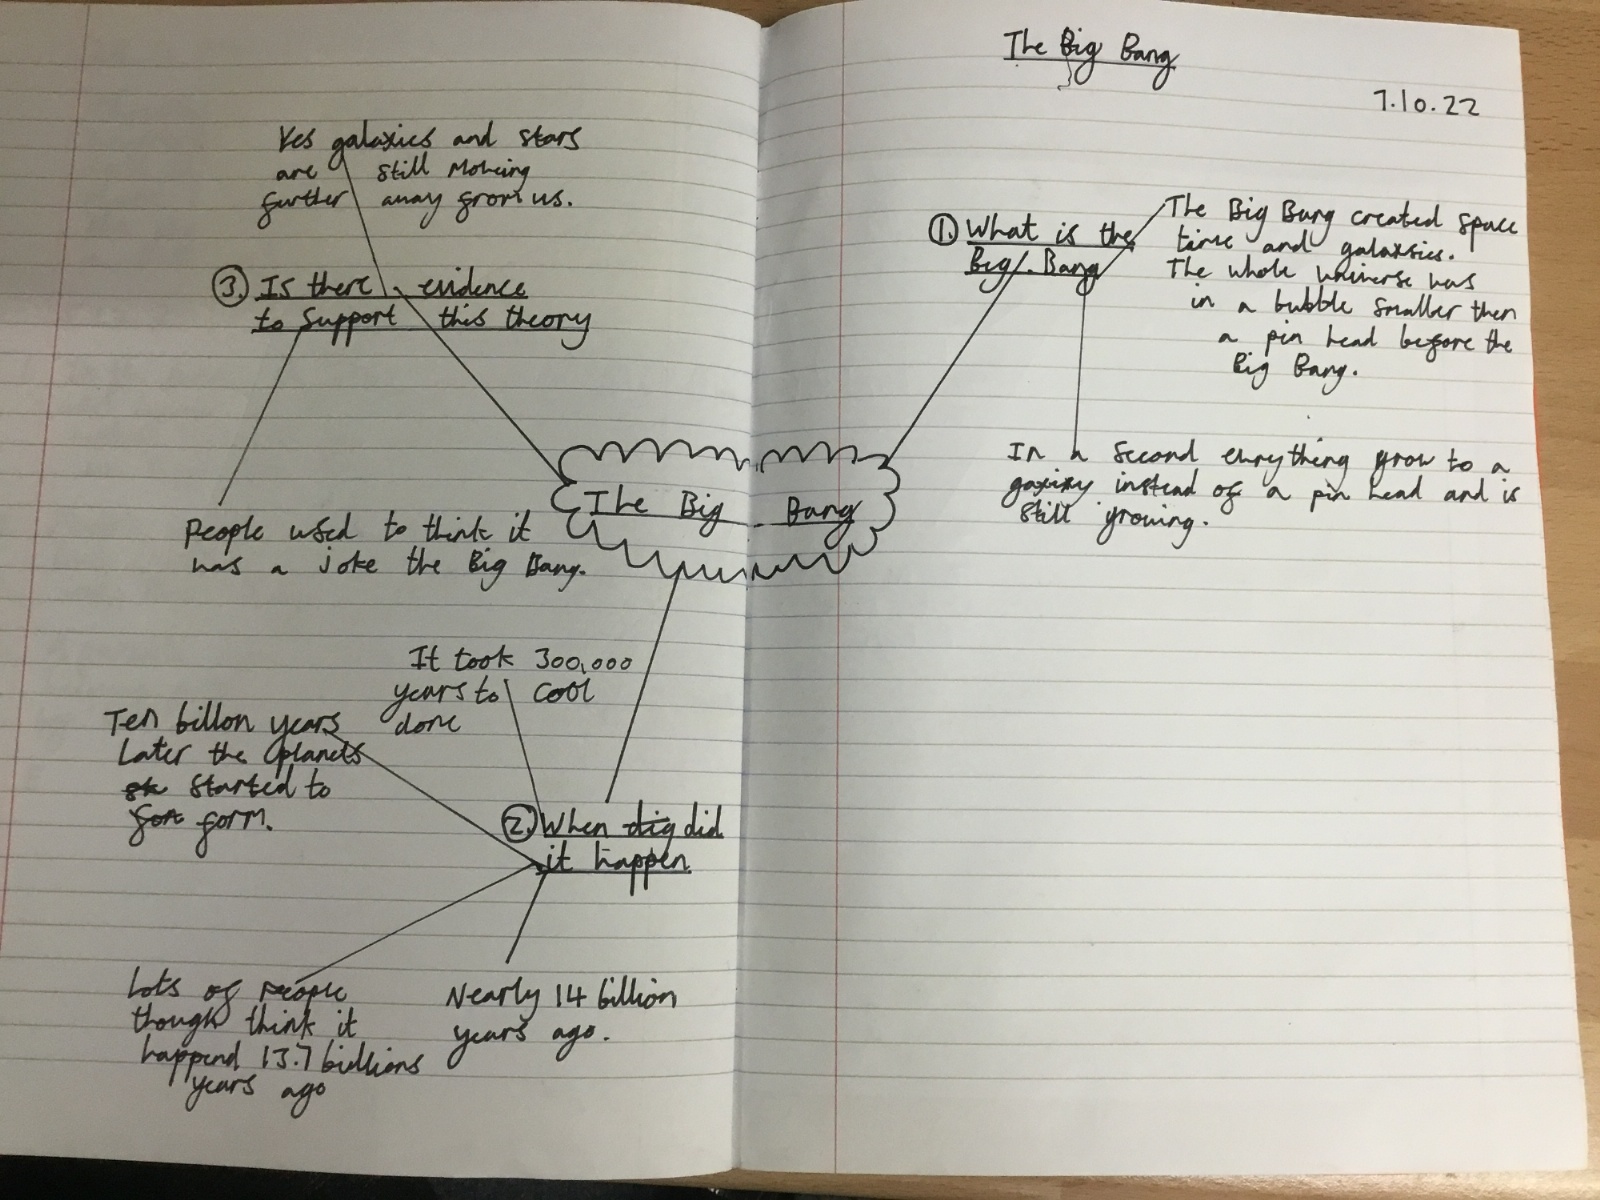 The Big Bang
7.10.22
① What is the
Big Bang
The Big Bang created space
time and galaxsies.
The whole universe was
in a bubble smaller then
a pin head before the
Big Bang.
In a second everything grow to a
instead of a pin head and is
still growing.
The Big Bang
② When did
it happen
It took 300,000
years to cool
done
Ten billon years
Later the planets
started to
form.
Lots of people
though think it
happend 13.7 billions
years ago
Nearly 14 billion
years ago.
③ Is there evidence
to support this theory
Yes galaxies and stars
are still moveing
further away from us.
People used to think it
was a joke the Big Bang.